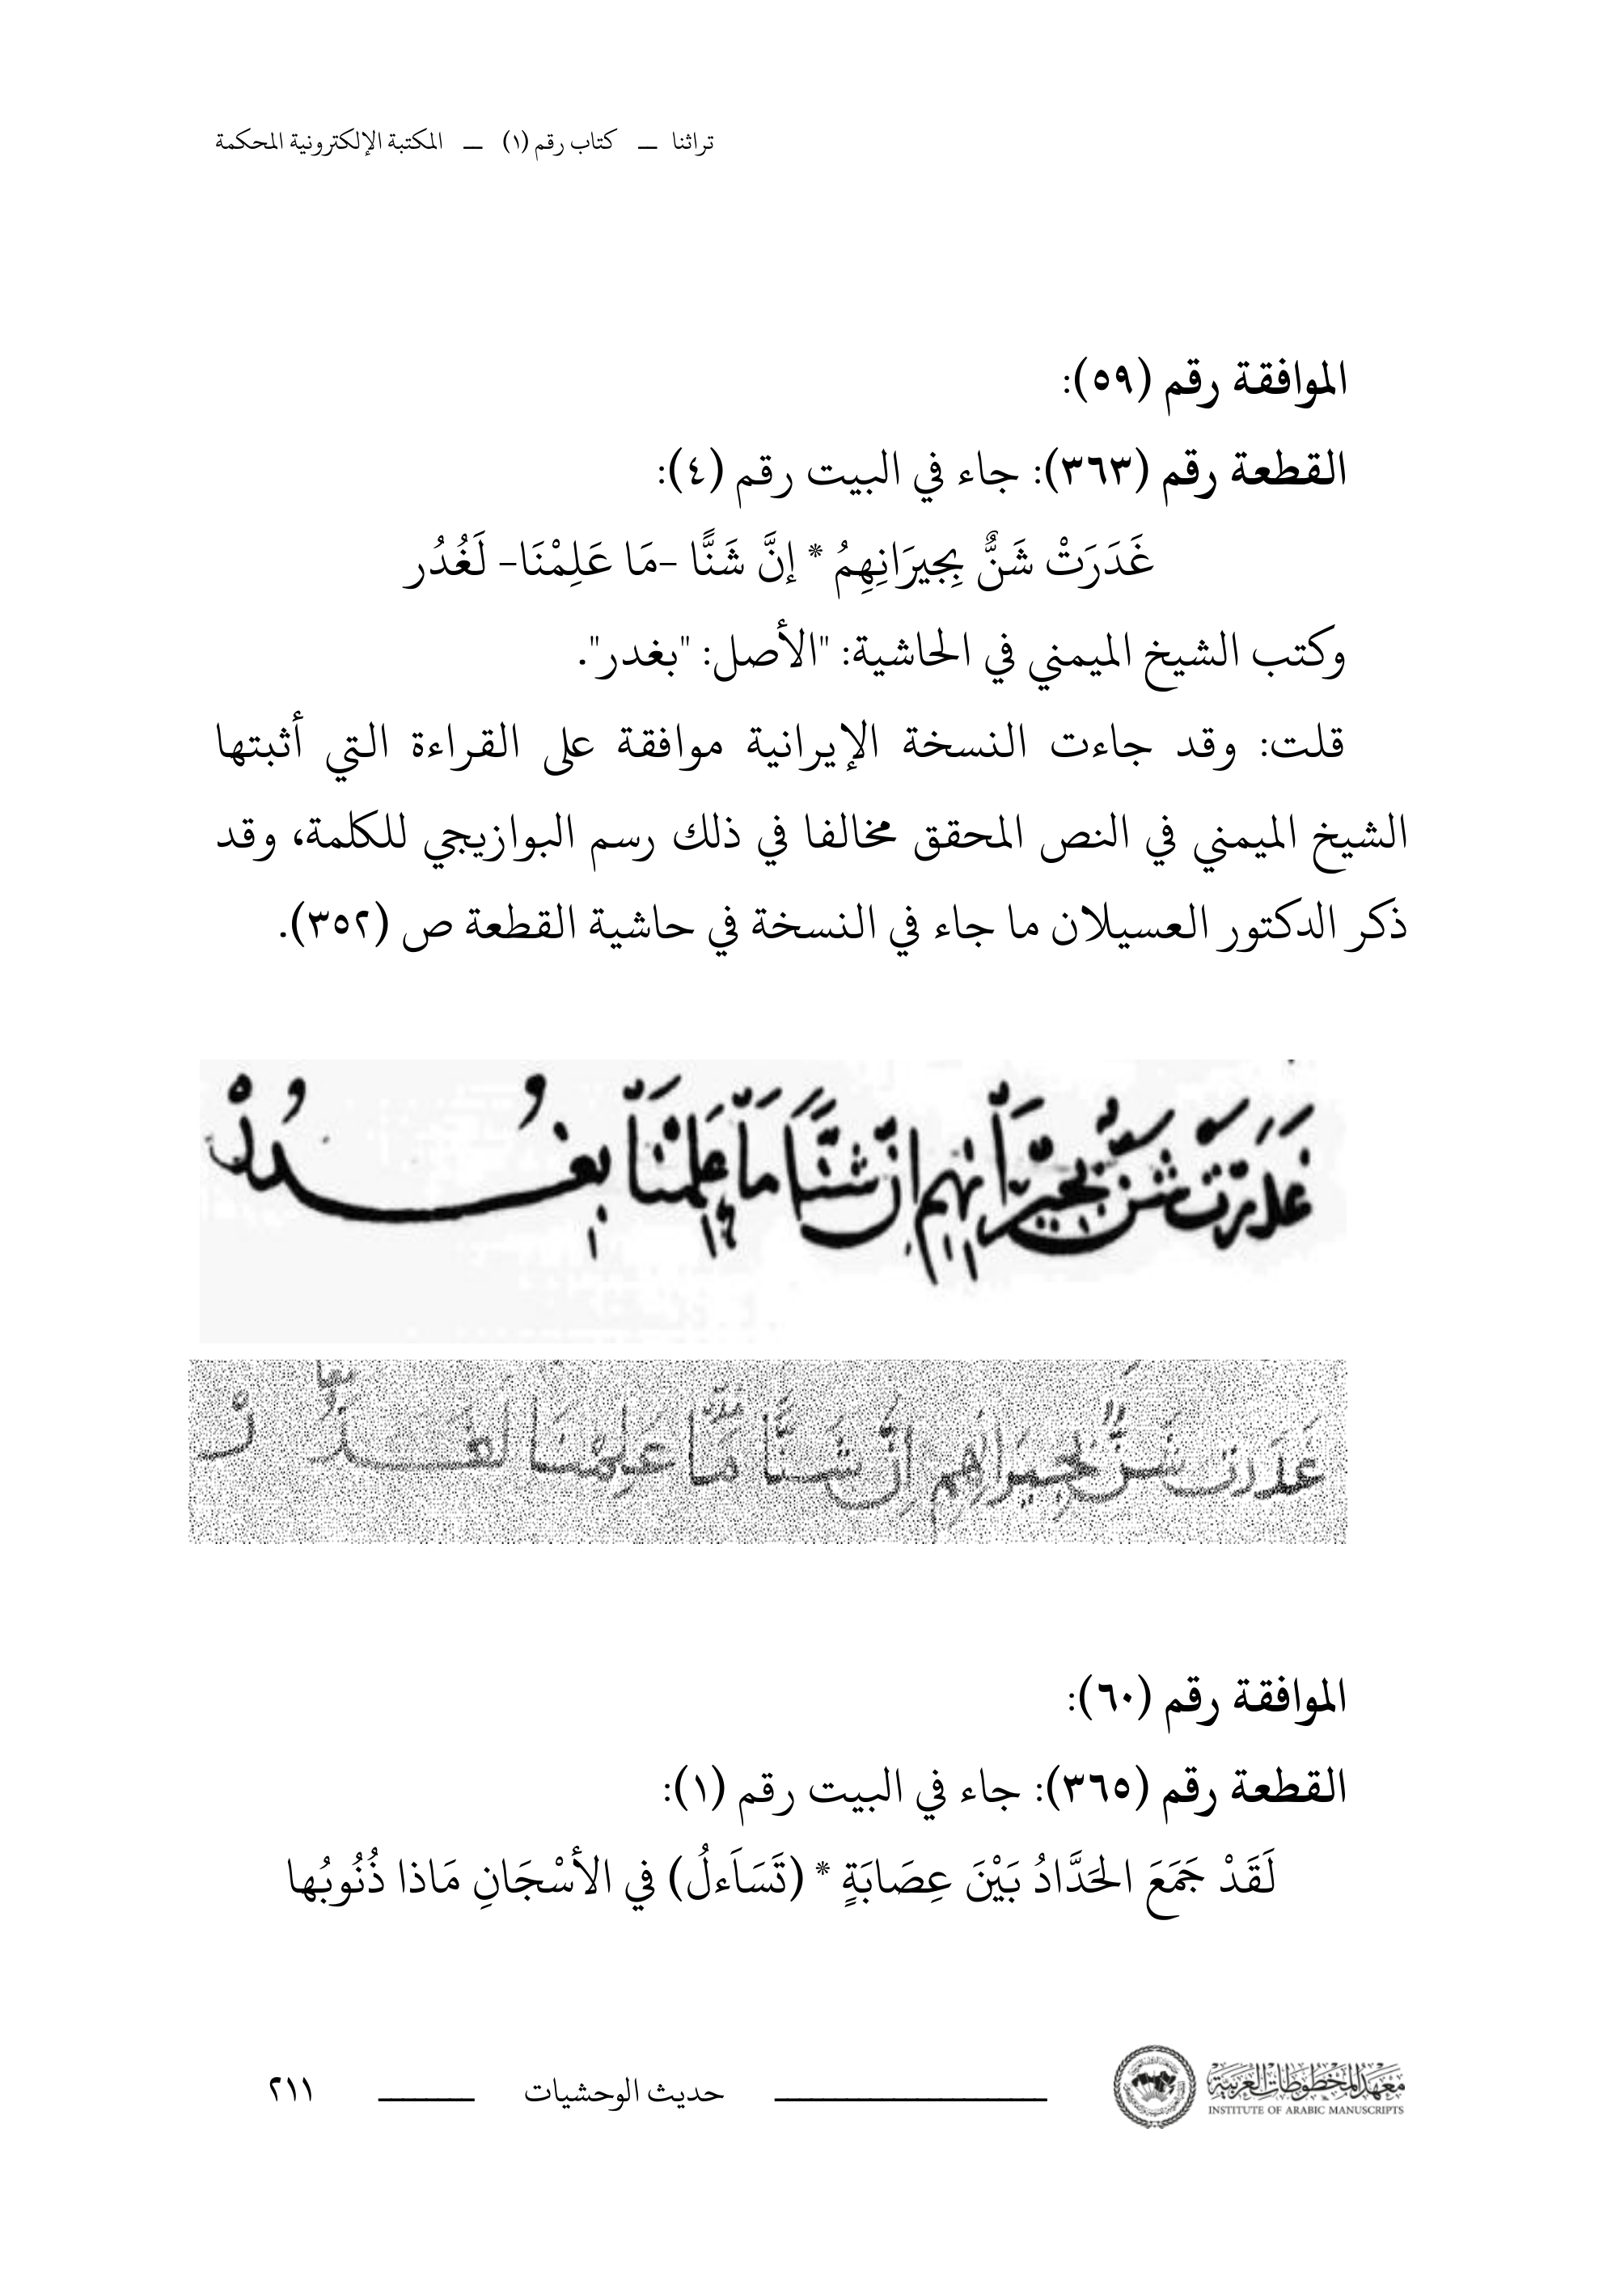 تراثنا — كتاب رقم (١) — المكتبة الإلكترونية المحكمة
الموافقة رقم (٥٩):
القطعة رقم (٣٦٣): جاء في البيت رقم (٤):
غَدَرَتْ شَنٌّ بِجيرَانِهِمُ * إنَّ شَنًّا -مَا عَلِمْنَا- لَغُدُر
وكتب الشيخ الميمني في الحاشية: "الأصل: "بغدر".
قلت: وقد جاءت النسخة الإيرانية موافقة على القراءة التي أثبتها
الشيخ الميمني في النص المحقق مخالفا في ذلك رسم البوازيجي للكلمة، وقد
ذكر الدكتور العسيلان ما جاء في النسخة في حاشية القطعة ص (٣٥٢).
غَدَرَتْ شَنٌّ بِجِيْرَانِهِم إِنَّ شَنًّا مَا عَلِمْنَا بِغُدُرْ
غَدَرَت شَنٌّ بجيرانهم إنَّ شَنًّا مَا عَلِمْنَا لَغَدُرْ
الموافقة رقم (٦٠):
القطعة رقم (٣٦٥): جاء في البيت رقم (١):
لَقَدْ جَمَعَ الحَدَّادُ بَيْنَ عِصَابَةٍ * (تَسَاَءلُ) في الأسْجَانِ مَاذا ذُنُوبُها
معهد المخطوطات العربية
INSTITUTE OF ARABIC MANUSCRIPTS
حديث الوحشيات
٢١١